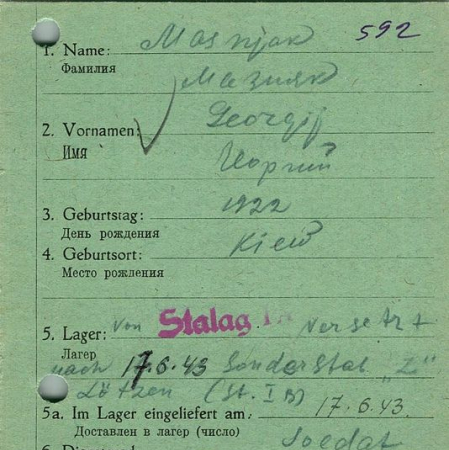 592
1. Name: Masnjak
Фамилия Мазняк
2. Vornamen: Georgij
Имя
3. Geburtstag: 1922
День рождения
4. Geburtsort: Kiew
Место рождения
5. Lager: von Stalag versetzt
Лагерь nach 17.6.43 Sonderstal. "Z"
Lötzen (St. IB)
5a. Im Lager eingeliefert am: 17.6.43.
Доставлен в лагерь (число)
Soldat